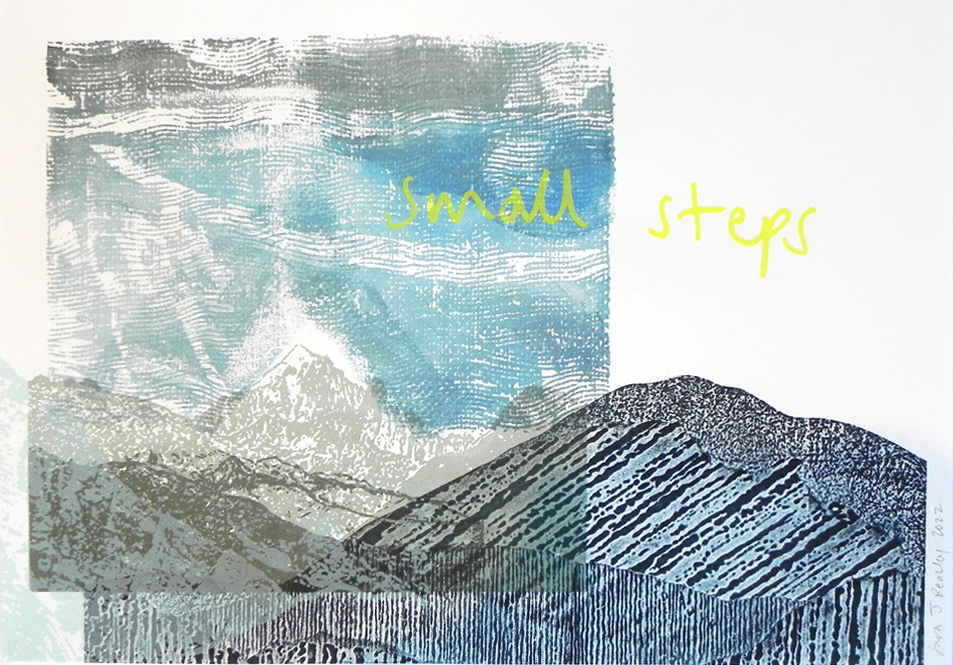 small steps
J Bearley 2022